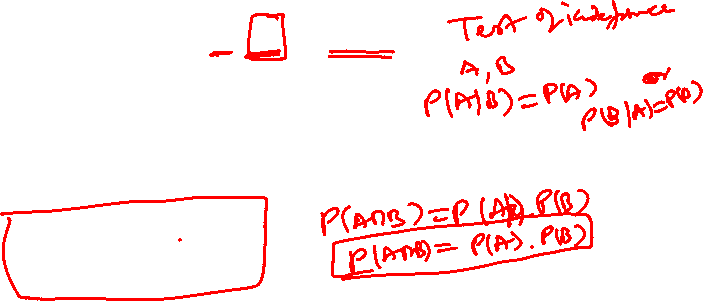 Test of independence
A, B
P(A|B) = P(A) or
P(B|A) = P(B)
P(A∩B) = P(A|B). P(B)
P(A∩B) = P(A). P(B)